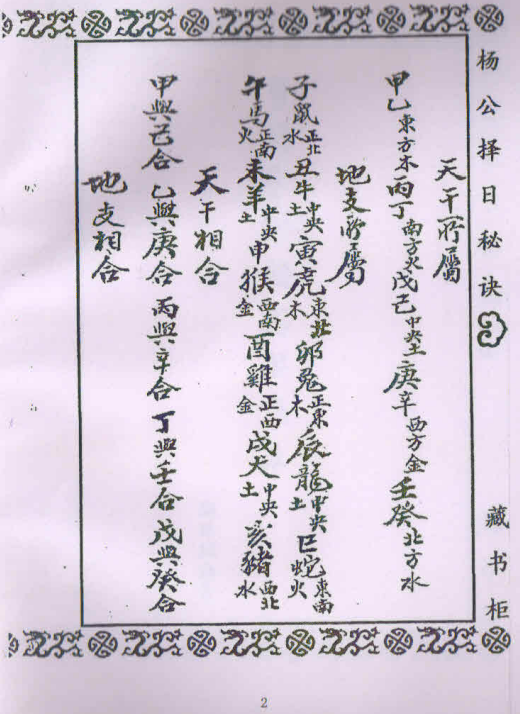 杨公择日秘诀
藏书柜
天干所屬
甲乙東方木丙丁南方火戊己中央土庚辛西方金壬癸北方水
地支所屬
子鼠正北水丑牛中央土寅虎東北木卯兔正東木辰龍中央土巳蛇東南火
午馬正南火未羊中央土申猴西南金酉雞正西金戌犬中央土亥豬西北水
天干相合
甲與己合乙與庚合丙與辛合丁與壬合戊與癸合
地支相合
2